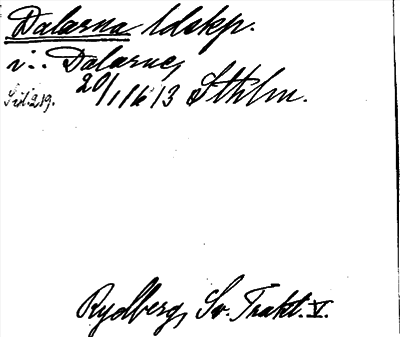 Dalarna ldskp.
i: Dalarne,
20/1 1613 Sthlm.
Sid. 219.
Rydberg, Sv. Trakt. V.